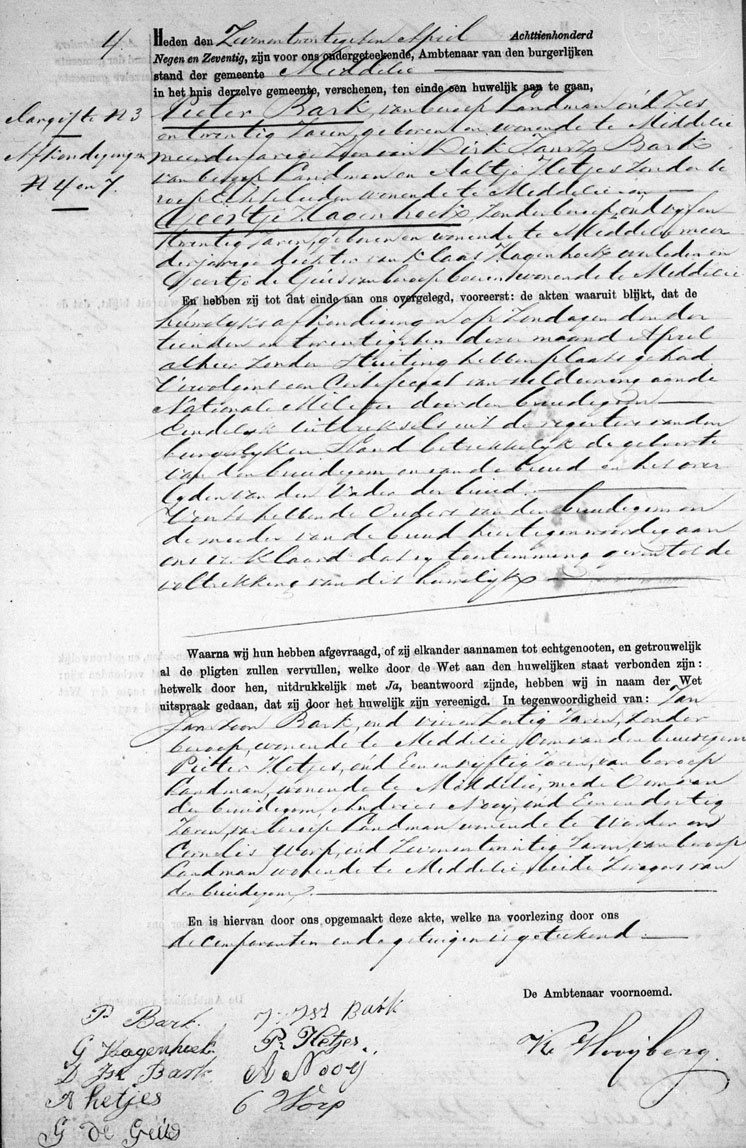 4.
Aangifte N 3
Afkondigingen
N 4 en 7.
Heden den Zevenentwintigsten April Achttienhonderd
Negen en Zeventig, zijn voor ons ondergeteekende, Ambtenaar van den burgerlijken
stand der gemeente Middelie
in het huis derzelve gemeente, verschenen, ten einde een huwelijk aan te gaan,
Pieter Bark, van beroep Landman oud Zes
en twintig Jaren, geboren en wonende te Middelie
meerderjarige Zoon van Dirk Jansz Bark
van beroep Landman en Aaltje Hetjes zonder be
roep Echtelieden wonende te Middelie en
Geertje Hagenhoek, zonder beroep, oud vyf en
twintig Jaren, geboren en wonende te Middelie, meer
derjarige dochter van Klaas Hagenhoek overleden en
Geertje de Geus van beroep boerin wonende te Middelie
En hebben zij tot dat einde aan ons overgelegd, vooreerst: de akten waaruit blijkt, dat de
huwelyks afkondigingen op Zondagen den der
tienden en twintigsten dezer maand April
alhier zonder stuiting hebben plaats gehad
Vervolgens een Certificaat van voldoening aan de
Nationale Militie door den bruidegom
Eindelyk uittreksels uit de registers van den
burgerlyken Stand betrekkelyk de geboorte
van den bruidegom en van de bruid en het over
lyden van den Vader der bruid.
Voorts hebben de Ouders van den bruidegom en
de moeder van de bruid hier tegenwoordig aan
ons verklaard dat zy toestemming geven tot de
voltrekking van dit huwelijk
Waarna wij hun hebben afgevraagd, of zij elkander aannamen tot echtgenooten, en getrouwelijk
al de pligten zullen vervullen, welke door de Wet aan den huwelijken staat verbonden zijn:
hetwelk door hen, uitdrukkelijk met Ja, beantwoord zijnde, hebben wij in naam der Wet
uitspraak gedaan, dat zij door het huwelijk zijn vereenigd. In tegenwoordigheid van: Jan
Jan zoon Bark, oud vier en zestig Jaren, zonder
beroep, wonende te Middelie, Oom van den bruidegom
Pieter Hetjes, oud Een en vyftig Jaren, van beroep
Landman, wonende te Middelie, mede Oom van
den bruidegom, Andries Nooy, oud Een en dertig
Jaren, van beroep Landman wonende te Warder en
Cornelis Worp, oud Zevenentwintig Jaren, van beroep
Landman wonende te Middelie, beide Zwagers van
den bruidegom.
En is hiervan door ons opgemaakt deze akte, welke na voorlezing door ons
de comparanten en de getuigen is geteekend.
De Ambtenaar voornoemd.
P Bark. J. Jsz Bark
G Hagenhoek P. Hetjes
D Jsz Bark A Nooij
A hetjes C Worp
G de Geus
K Hooijberg.